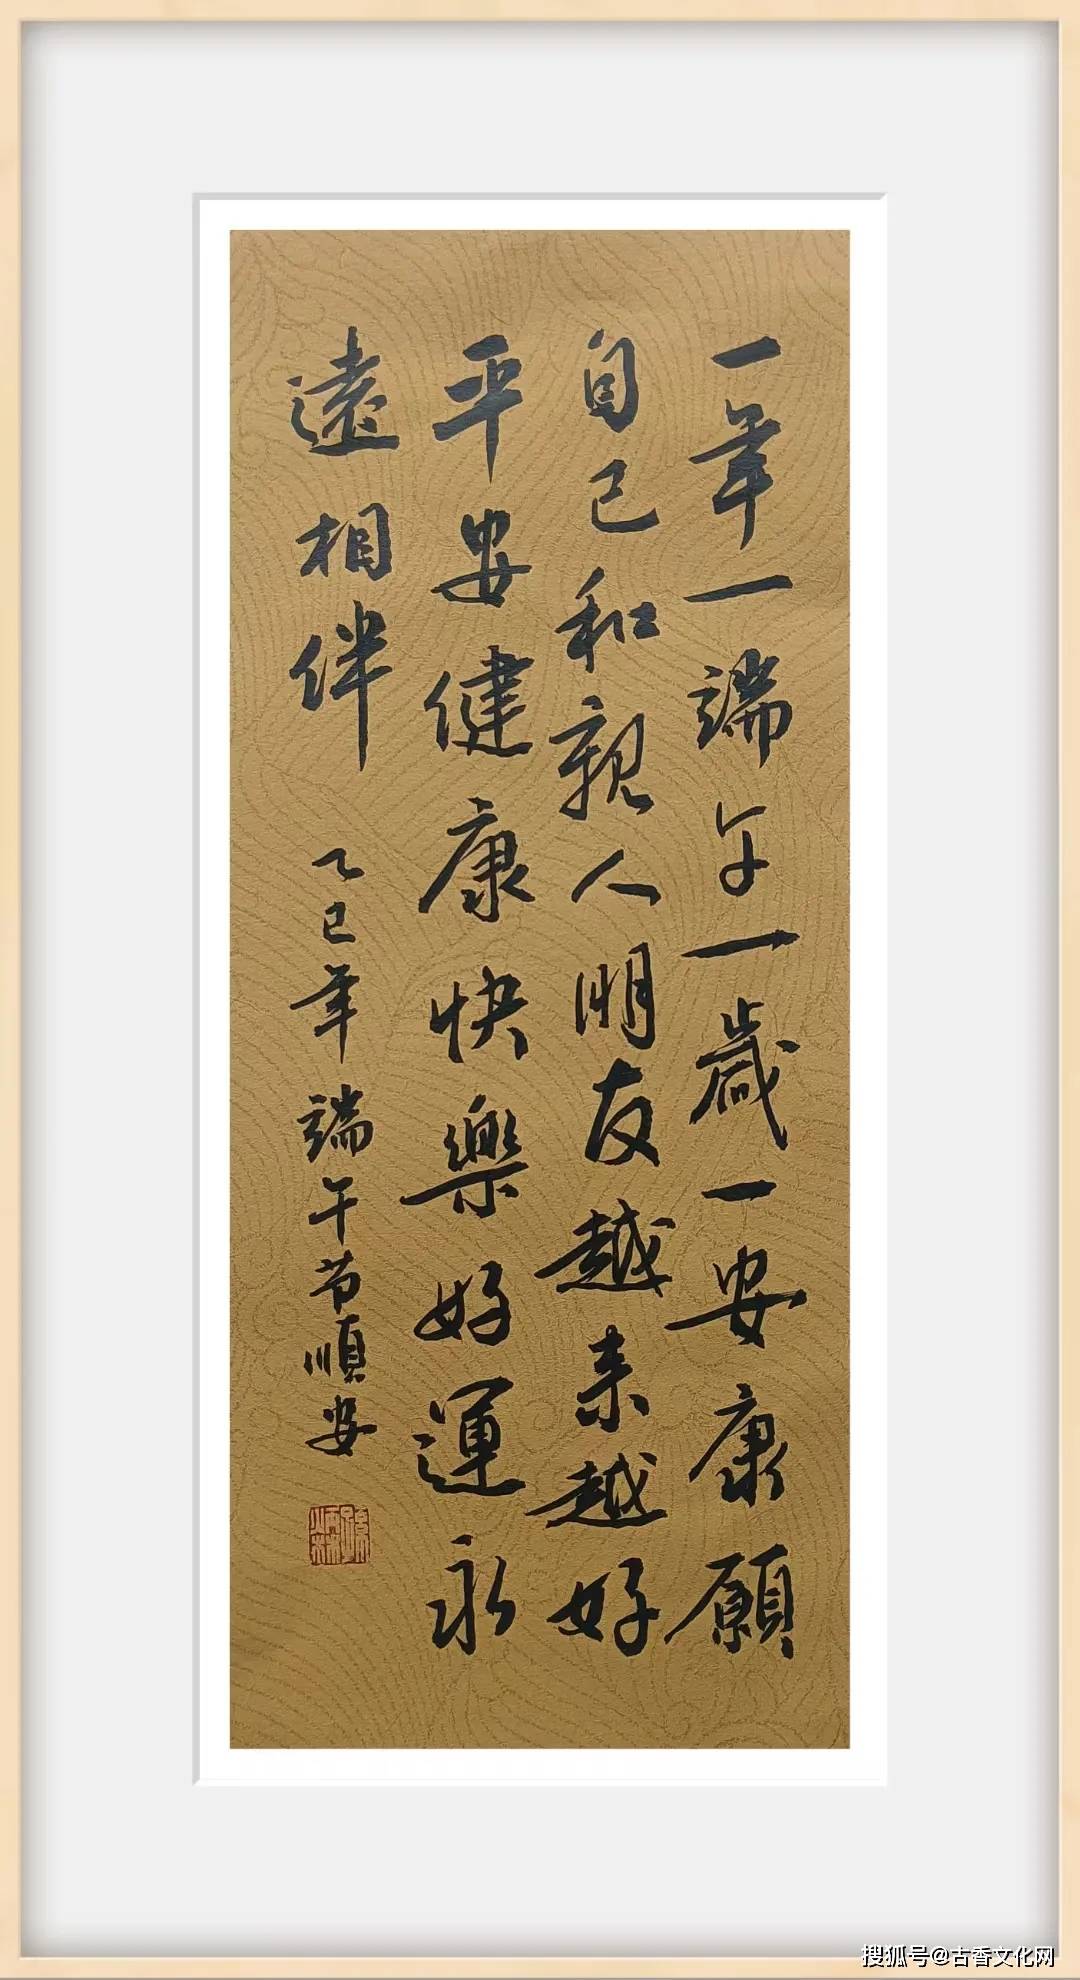 一年一端午一歲一安康願
自己和親人朋友越来越好
平安健康快樂好運永
遠相伴
乙巳年端午节順安
搜狐号@古香文化网